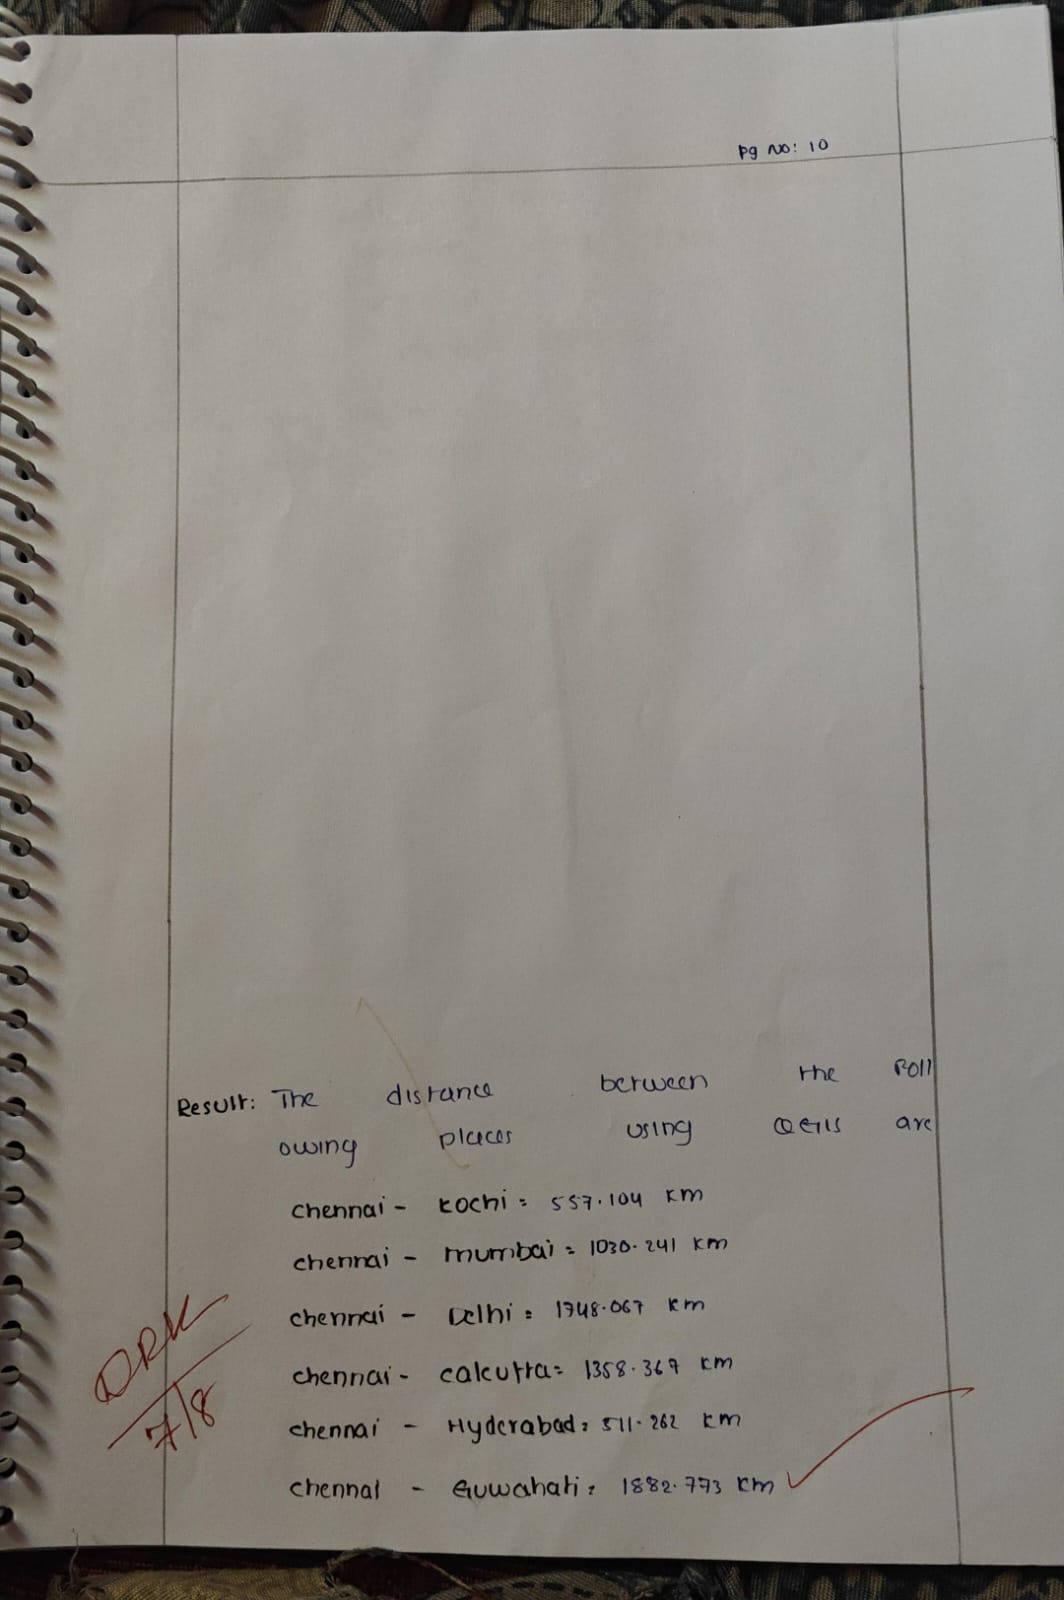 Pg No: 10
Result: The distance between the foll
owing places using QGIS are
chennai - kochi = 557.104 km
chennai - mumbai = 1030.241 km
chennai - Delhi = 1748.067 km
chennai - calcutta = 1358.367 km
chennai - Hyderabad = 511.262 km
chennai - Guwahati = 1882.773 km
7/8